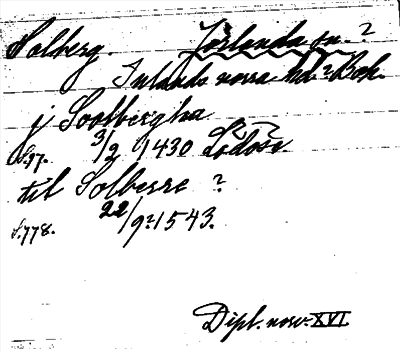 Solberg. Jörlanda sn. ?
Inlands norra hd. ? Boh.
j Soolbergha
S.97. 3/2 1430 Lödose.
til Solberre ?
S.778. 22/9 ? 1543.
Dipl. norv. XVI